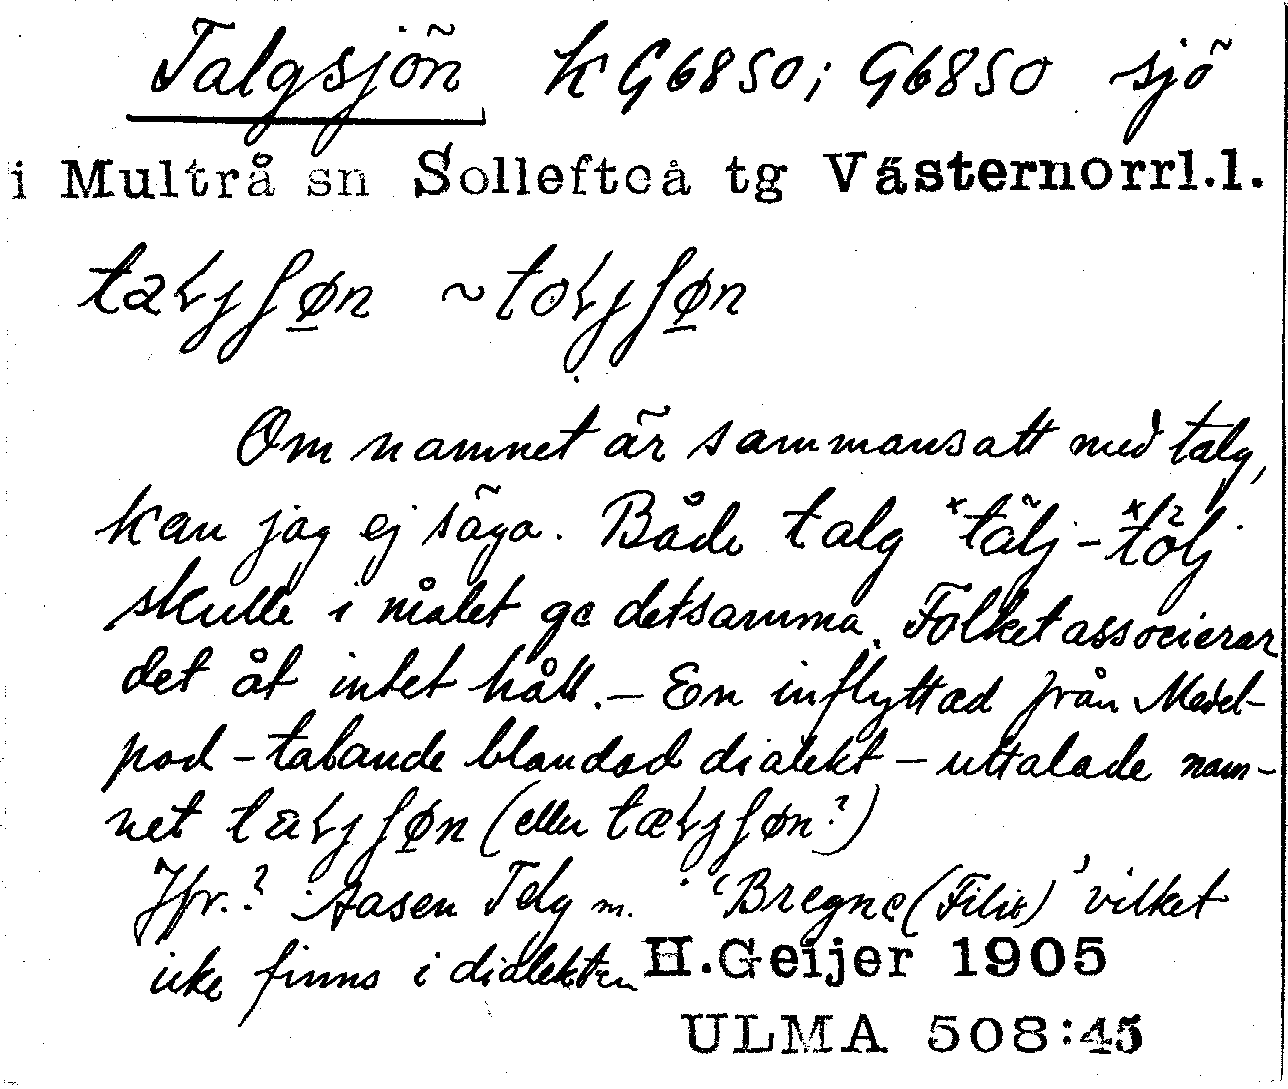 Talgsjön k G6850; G6850 sjö
i Multrå sn Sollefteå tg Västernorrl.l.
Om namnet är sammansatt med talg,
kan jag ej säga. Både talg *tälj- *tölj
skulle i målet ge detsamma. Folket associerar
det åt intet håll. – En inflyttad från Medel-
pad – talande blandad dialekt – uttalade nam-
net (eller ?)
Jfr.? Aasen Telg m. 'Bregne (Filix)' vilket
icke finns i dialekten
H.Geijer 1905
ULMA 508:45